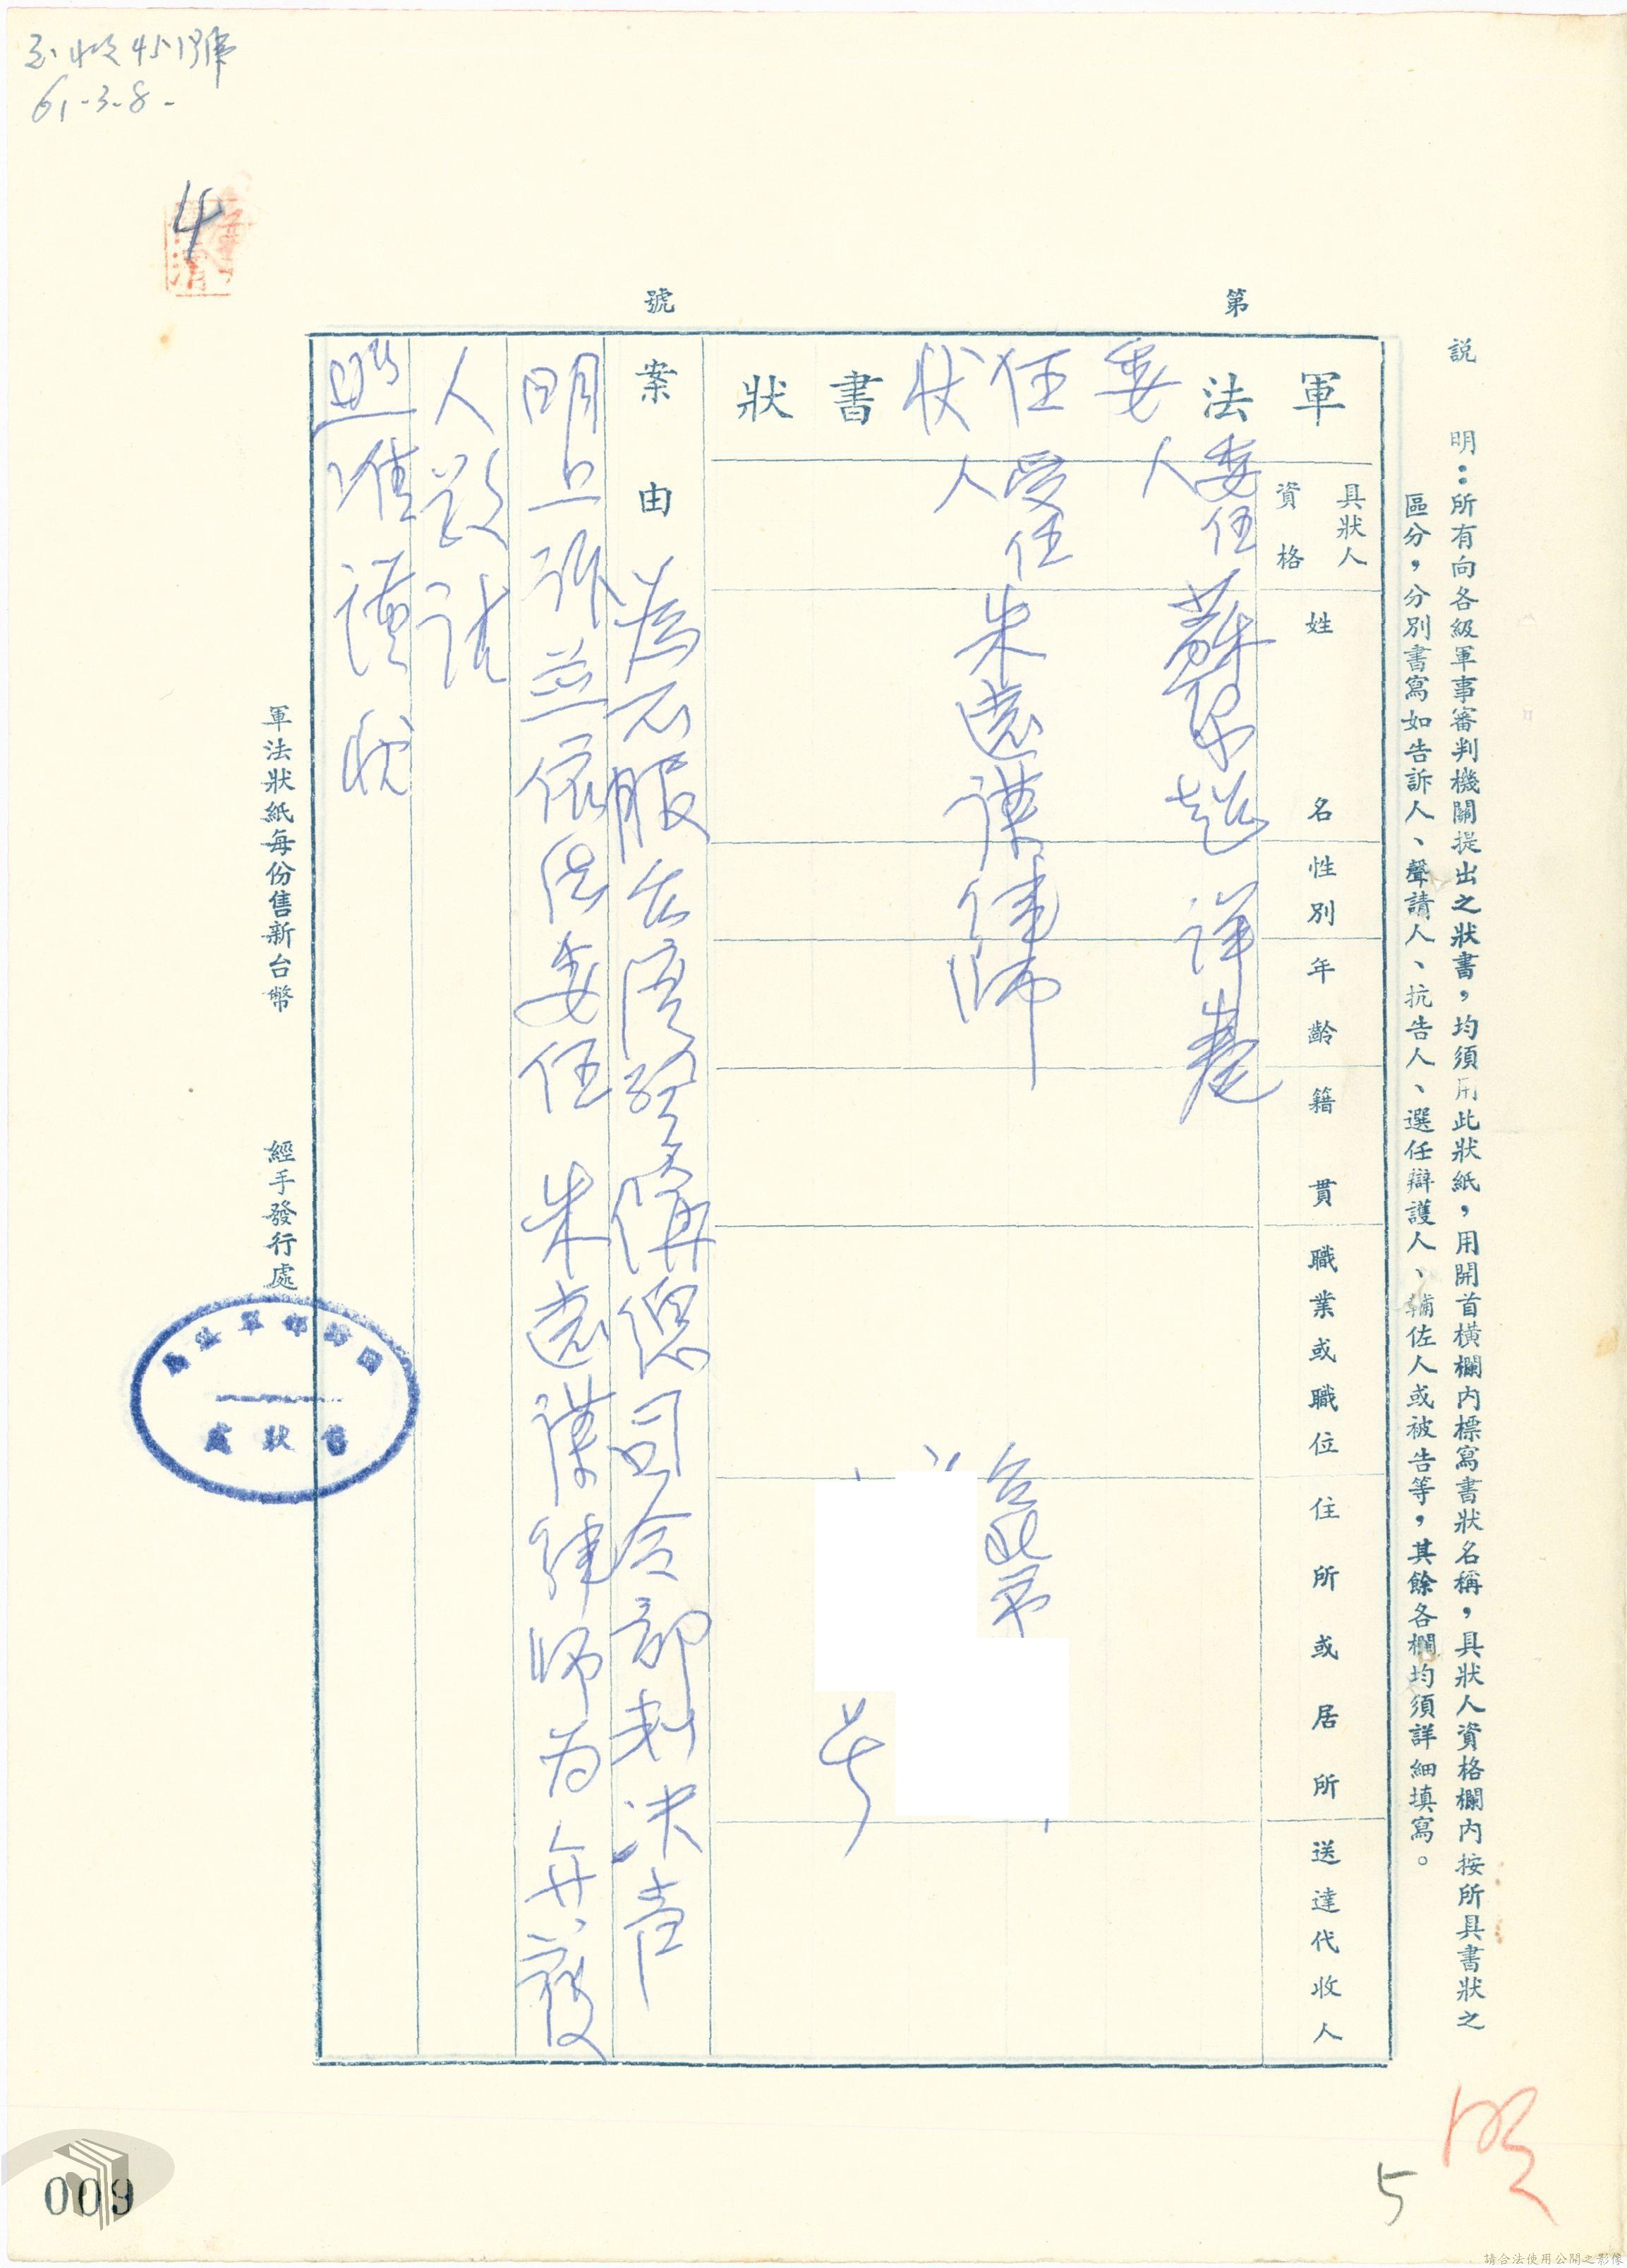 説　明：所有向各級軍事審判機關提出之狀書，均須用此狀紙，用開首橫欄內標寫書狀名稱，具狀人資格欄內按所具書狀之
區分，分別書寫如告訴人、聲請人、抗告人、選任辯護人、輔佐人或被告等，其餘各欄均須詳細填寫。
第　號
軍法書狀
委任狀
具狀人資格
姓名
性別
年齡
籍貫
職業或職位
住所或居所
送達代收人
委任人
詳卷
受任人
朱遠謀律師
台北市
号
案由
為不服台湾警備總司令部判決声
明上訴並依法委任朱遠謀律師為弁護
人
照准謹狀
軍法狀紙每份售新台幣
經手發行處
國防部軍法局
售狀處
收451號
61-3-8-
4
5
009
請合法使用公開之影像